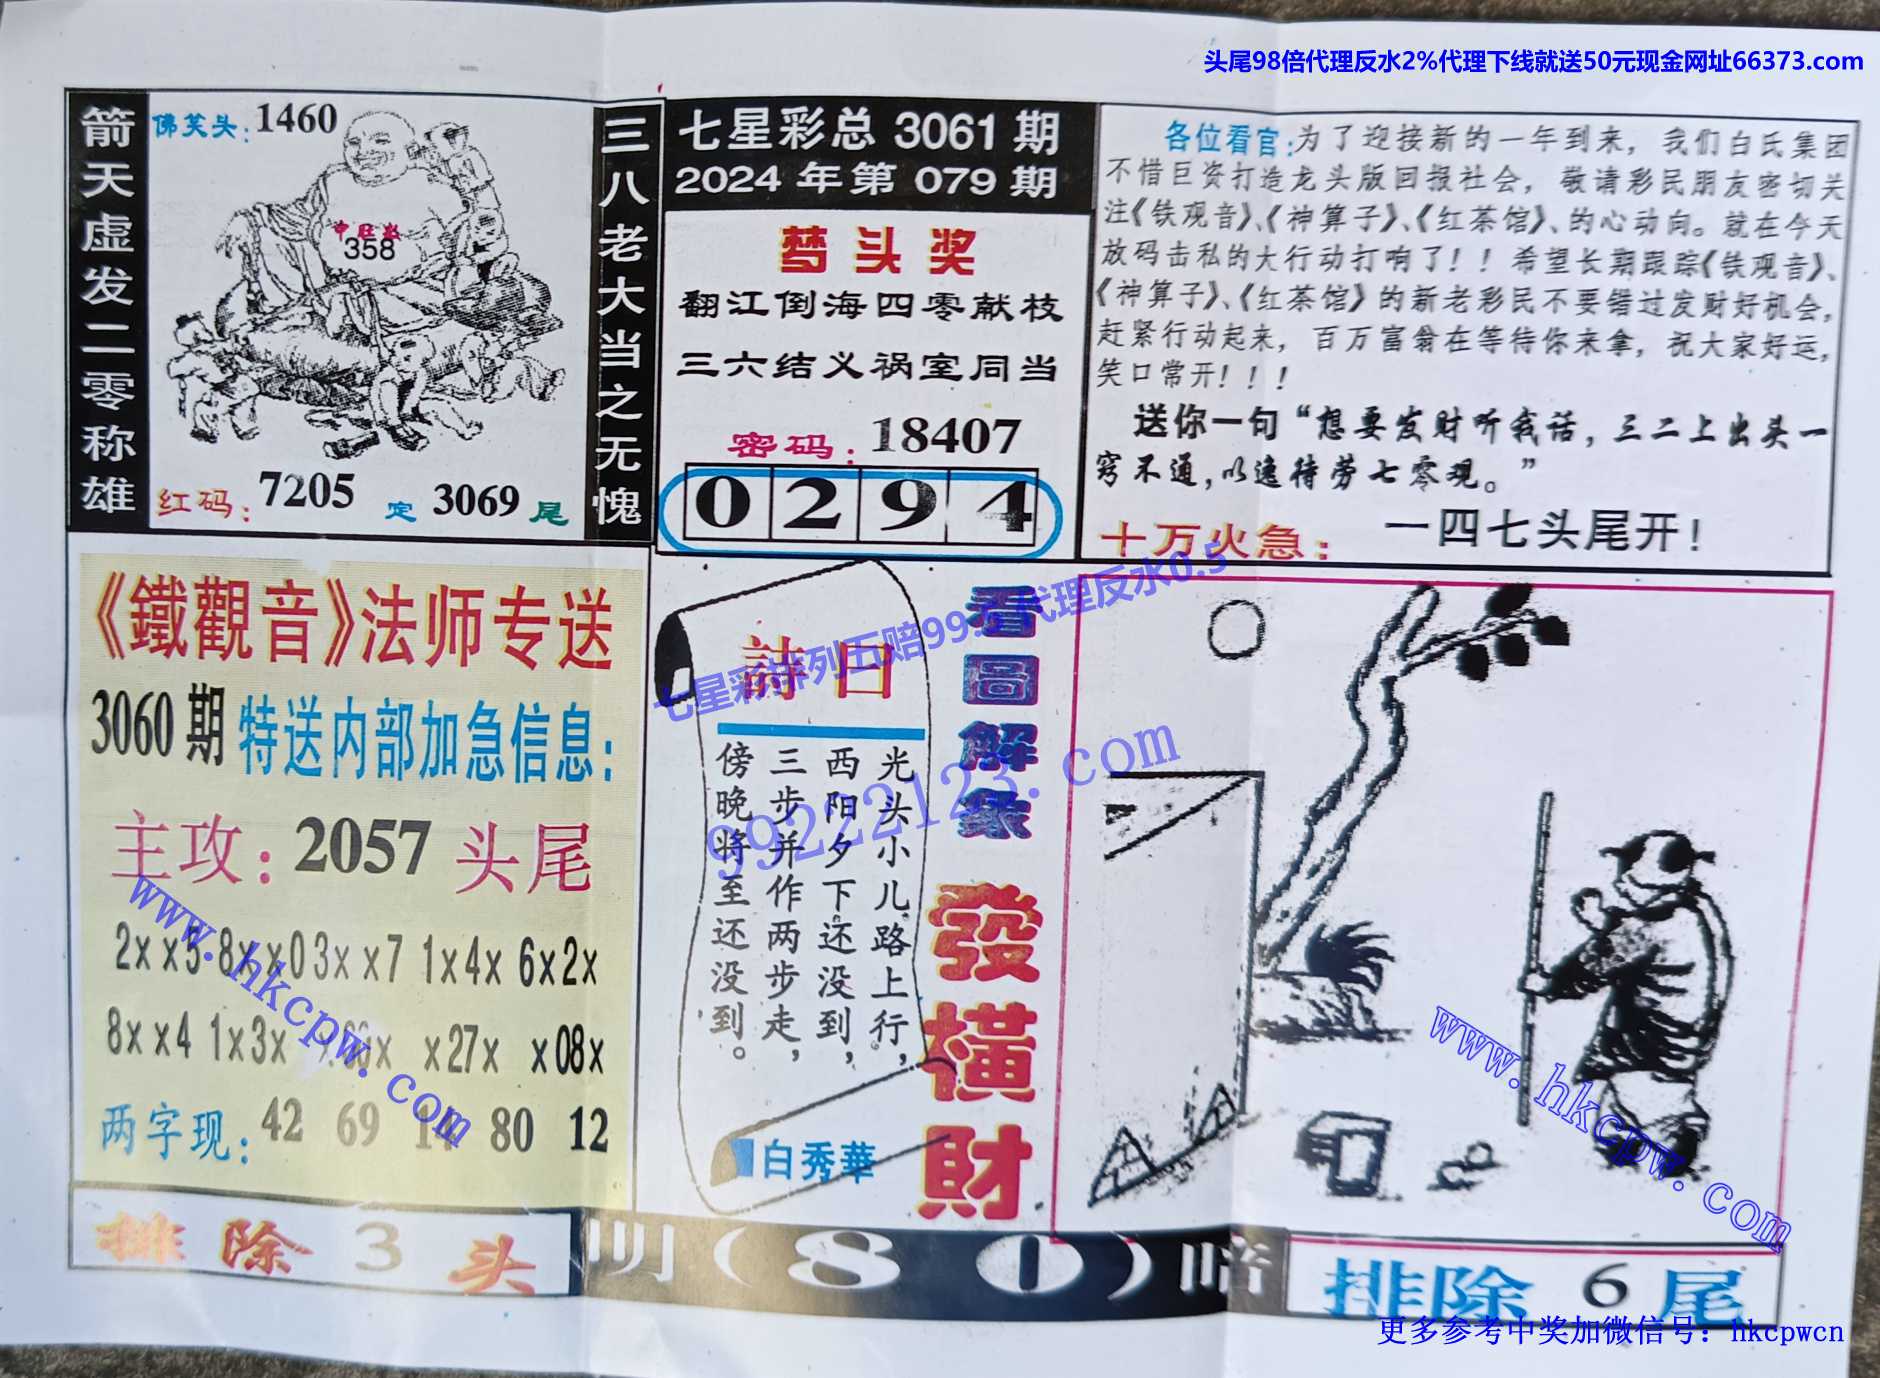 头尾98倍代理反水2%代理下线就送50元现金网址66373.com
箭天虚发二零称雄
佛笑头:1460
中旺数
358
红码:7205 定 3069 尾
三八老大当之无愧
七星彩总 3061 期
2024 年第 079 期
梦头奖
翻江倒海四零献枝
三六结义祸室同当
密码:18407
0 2 9 4
各位看官:为了迎接新的一年到来,我们白氏集团
不惜巨资打造龙头版回报社会,敬请彩民朋友密切关
注《铁观音》、《神算子》、《红茶馆》、的心动向。就在今天
放码击私的大行动打响了!!希望长期跟踪《铁观音》、
《神算子》、《红茶馆》的新老彩民不要错过发财好机会,
赶紧行动起来,百万富翁在等待你来拿,祝大家好运,
笑口常开!!!
送你一句“想要发财听我话,三二上出头一
窍不通,以逸待劳七零现。”
十万火急: 一四七头尾开!
《鐵觀音》法师专送
3060 期 特送内部加急信息:
主攻:2057 头尾
2××5 8××0 3××7 1×4× 6×2×
8××4 1×3× ×27× ×08×
两字现: 42 69 14 80 12
詩曰
光头小儿路上行,
西阳夕下还没到,
三步并作两步走,
傍晚将至还没到。
白秀華
看圖解象
發橫財
七星彩排列五赔99.5代理反水0.5
99222123.com
www.hkcpw.com
www.hkcpw.com
排除 3 头
明(80)暗
排除 6 尾
更多参考中奖加微信号:hkcpwcn